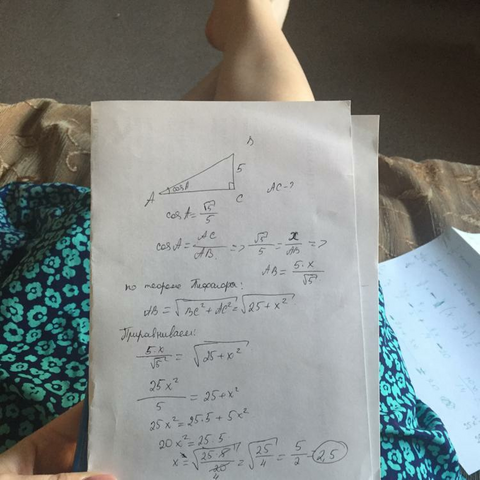 B
5
A
cosA
C
AC-?
cosA = √5/5
cosA = AC/AB => √5/5 = x/AB =>
AB = 5·x/√5
по теореме Пифагора:
AB = √BC²+AC² = √25+x²
Приравниваем:
5·x/√5 = √25+x²
25x²/5 = 25+x²
25x² = 25·5+5x²
20x² = 25·5
x = √25·5/20 4 = √25/4 = 5/2 = 2,5